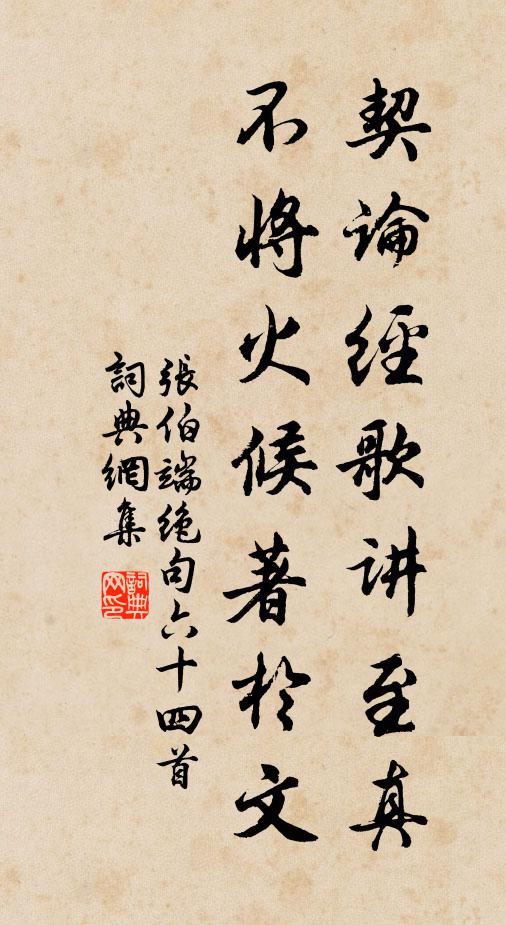 契論經歌讲至真
不將火候著於文
張伯端绝句六十四首
詞典網集
詞典
网印